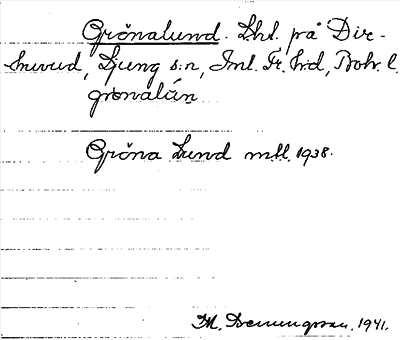 Grönalund. Lht. på Dir-
huvud, Ljung s:n, Inl. Fr. h:d, Boh. l.
grönalún
Gröna Lund mtl. 1938.
M. 1941.